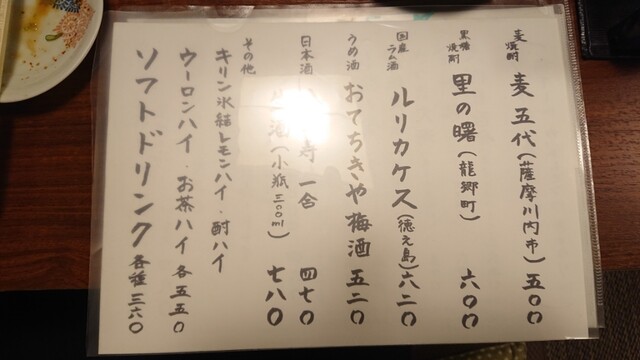 麦焼酎
麦五代(薩摩川内市) 五〇〇
黒糖焼酎
里の曙(龍郷町) 六〇〇
国産ラム酒
ルリカケス(徳之島) 六二〇
うめ酒
おてちきや梅酒 五二〇
日本酒
寿 一合 四七〇
酒(小瓶三〇〇ml) 七八〇
その他
キリン氷結レモンハイ・酎ハイ
ウーロンハイ・お茶ハイ 各五五〇
ソフトドリンク 各種 三六〇